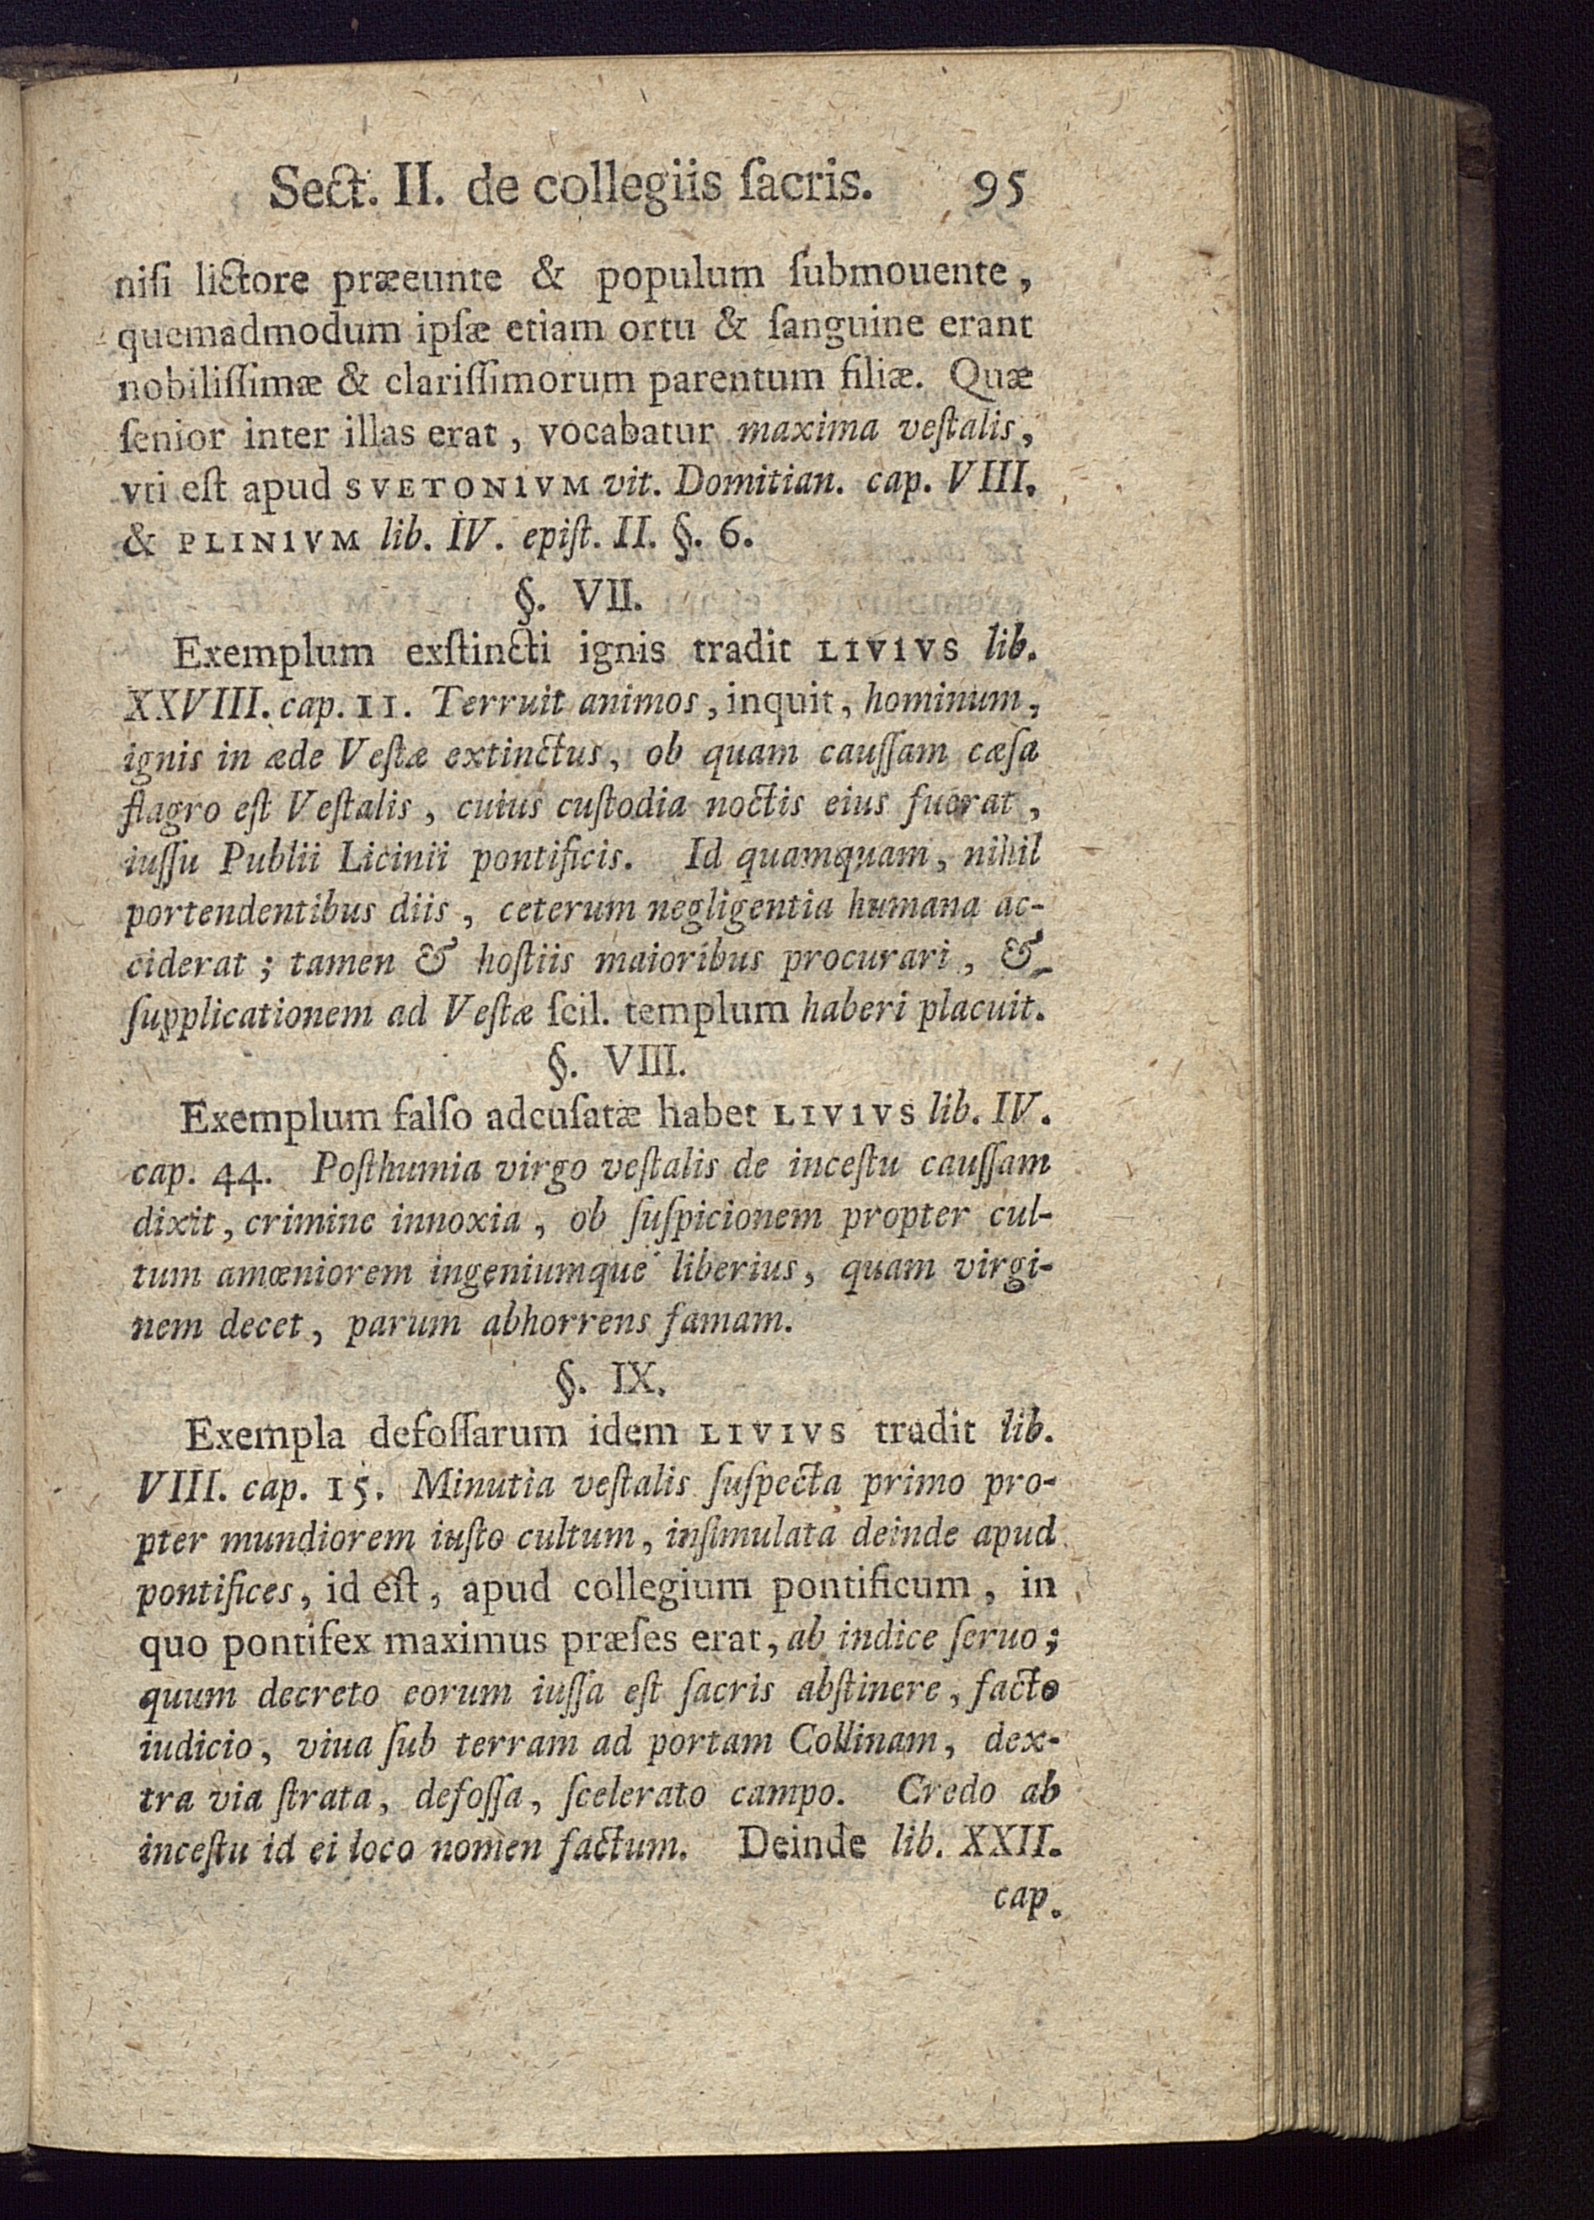 Sect. II. de collegiis ſacris. 95
niſi lictore præeunte & populum ſubmouente,
quemadmodum ipſæ etiam ortu & ſanguine erant
nobiliſſimæ & clariſſimorum parentum filiæ. Quæ
ſenior inter illas erat, vocabatur maxima veſtalis,
vti eſt apud SVETONIVM vit. Domitian. cap. VIII.
& PLINIVM lib. IV. epiſt. II. §. 6.
§. VII.
Exemplum exſtincti ignis tradit LIVIVS lib.
XXVIII. cap. 11. Terruit animos, inquit, hominum,
ignis in æde Veſtæ extinctus, ob quam cauſſam cæſa
flagro eſt Veſtalis, cuius cuſtodia noctis eius fuerat,
iuſſu Publii Licinii pontificis. Id quamquam, nihil
portendentibus diis, ceterum negligentia humana ac-
ciderat; tamen & hoſtiis maioribus procurari, &
ſupplicationem ad Veſtæ ſcil. templum haberi placuit.
§. VIII.
Exemplum falſo adcuſatæ habet LIVIVS lib. IV.
cap. 44. Poſthumia virgo veſtalis de inceſtu cauſſam
dixit, crimine innoxia, ob ſuſpicionem propter cul-
tum amœniorem ingeniumque liberius, quam virgi-
nem decet, parum abhorrens famam.
§. IX.
Exempla defoſſarum idem LIVIVS tradit lib.
VIII. cap. 15. Minutia veſtalis ſuſpecta primo pro-
pter mundiorem iuſto cultum, inſimulata deinde apud
pontifices, id eſt, apud collegium pontificum, in
quo pontifex maximus præſes erat, ab indice ſeruo;
quum decreto eorum iuſſa eſt ſacris abſtinere, facto
iudicio, viua ſub terram ad portam Collinam, dex-
tra via ſtrata, defoſſa, ſcelerato campo. Credo ab
inceſtu id ei loco nomen factum. Deinde lib. XXII.
cap.